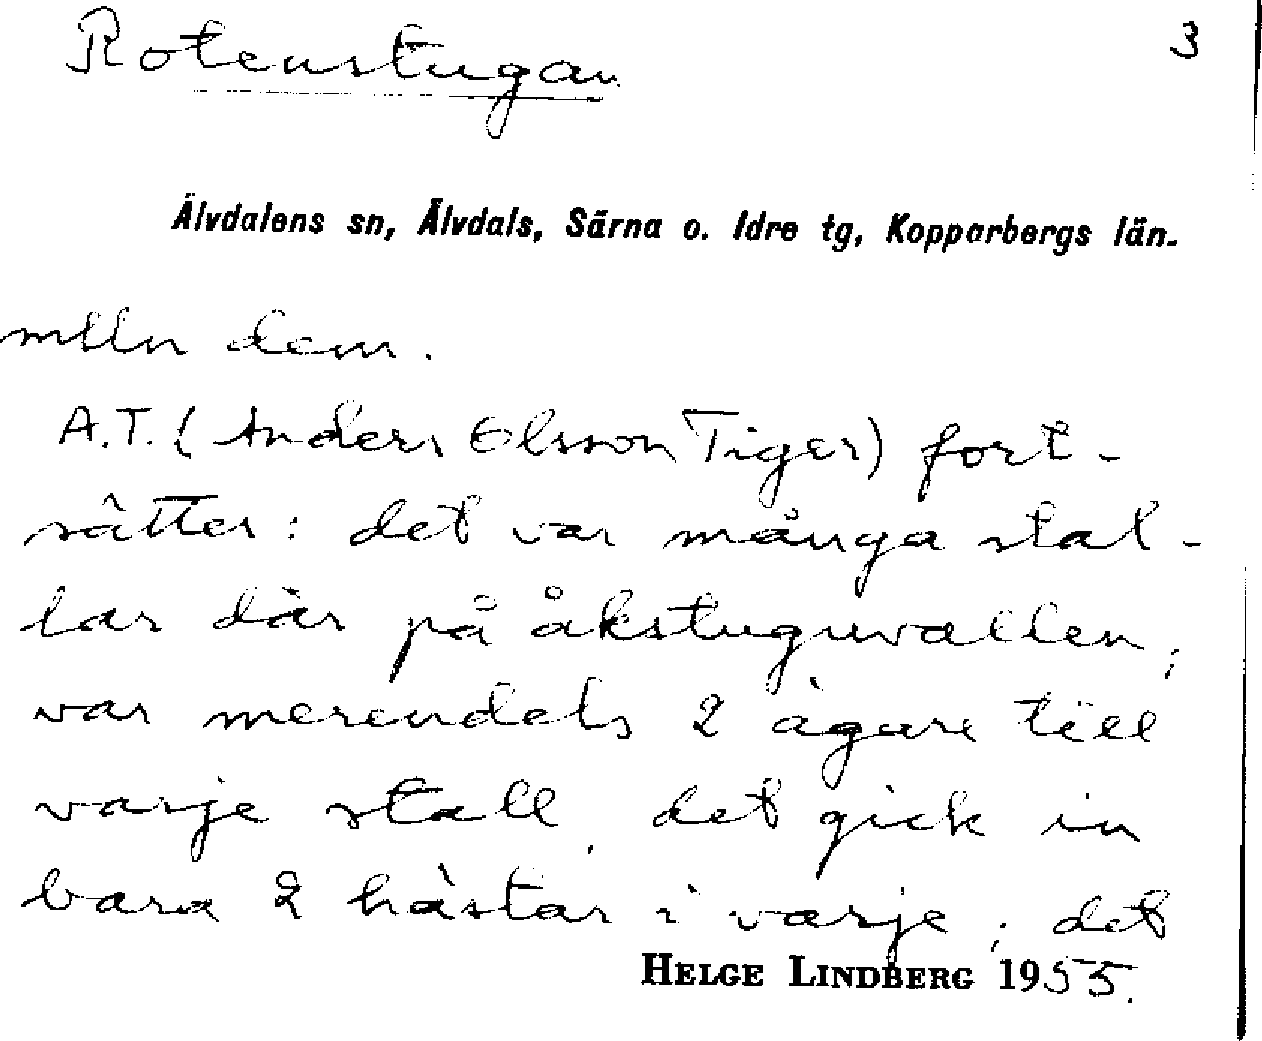 Rotenstugan
3
Älvdalens sn, Älvdals, Särna o. Idre tg, Kopparbergs län.
mlln dem.
A.T. (Anders Olsson Tiger) fort-
sätter: det var många stal-
lar där på åkstuguvallen,
var merendels 2 ägare till
varje stall, det gick in
bara 2 hästar i varje; det
HELGE LINDBERG 1955.